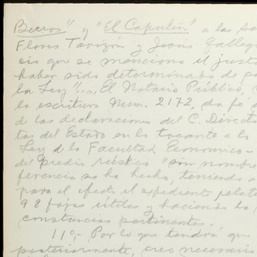 Becros" y "El Capulín" a las sa
Flores Tarizón y Jesús Galleg
cis que se menciona el justo
haber sido determinado de
la Ley". El Notario Público,
la escritura Núm. 2172, da fé
de las declaraciones del C. Direc
tas del Estado en lo tocante a la
Ley de la Facultad Económico-
de predio rústico "sin nombre
ferencia se ha hecho, teniendo a
para el efecto el expediente relat
98 fojas útiles y haciendo la
constancias pertinentes.
11o.- Por lo que tendrá que
posteriormente, creo necesario